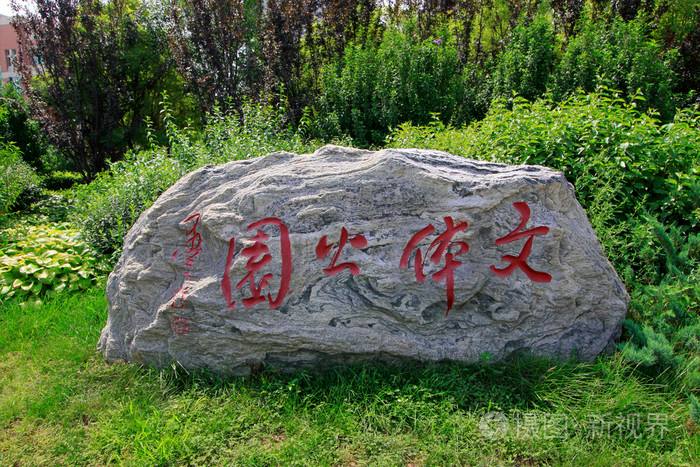 文体公园
摄图·新视界